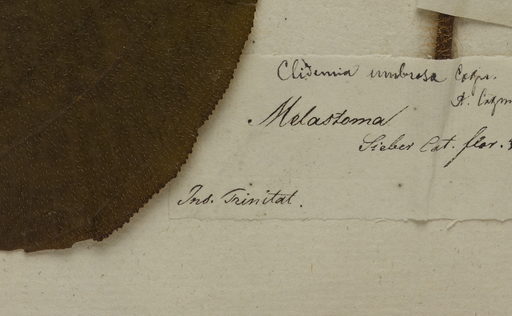 Clidemia umbrosa
Melastoma
Sieber Cat. flor.
Ins. Trinitat.